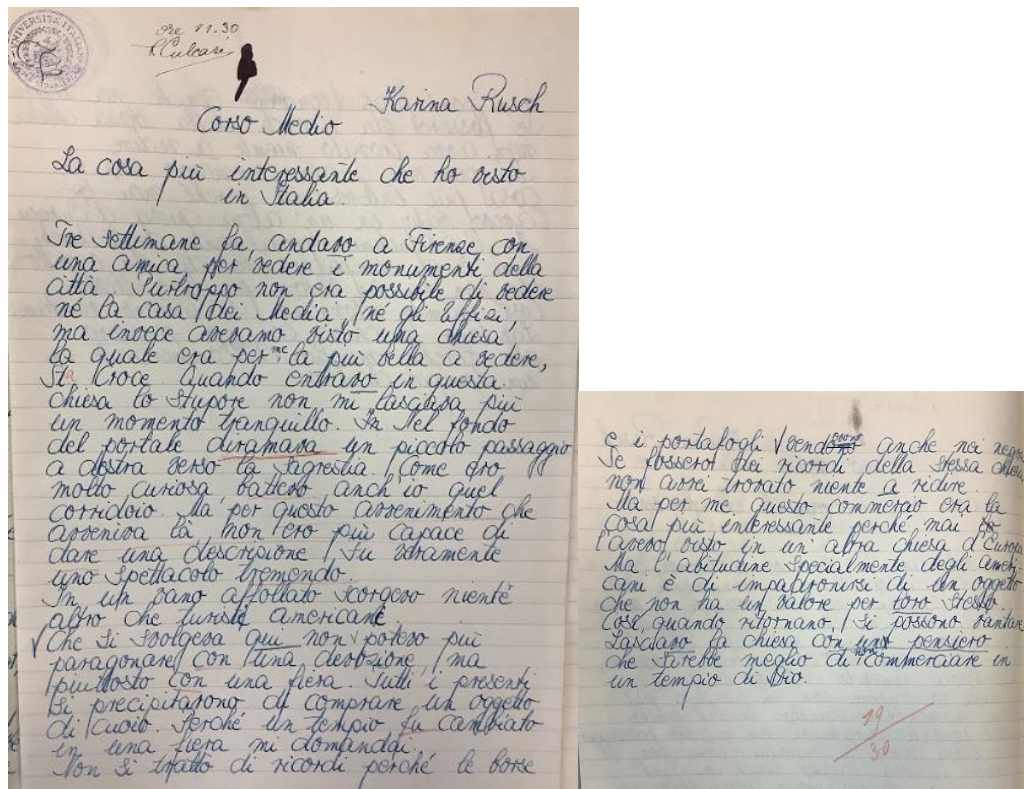 UNIVERSITÀ ITALIANA
ore 11.30
Karina Rusch
Corso Medio
La cosa più interessante che ho visto
in Italia.
Tre settimane fa, andavo a Firenze con
una amica per vedere i monumenti della
città. Purtroppo non era possibile di vedere
né la casa dei Media, né gli Uffizi,
ma invece avevamo visto una chiesa
la quale era per me la più bella a vedere,
Sta Croce. Quando entravo in questa
chiesa lo stupore non mi lasciava più
un momento tranquillo. In nel fondo
del portale diramava un piccolo passaggio
a destra verso la sagrestia. Come ero
molto curiosa, battevo anch'io quel
corridoio. Ma per questo avvenimento che
avveniva là, non ero più capace di
dare una descripzione. Fu veramente
uno spettacolo tremendo.
In un vano affollato scorgevo niente
altro che turisti americani.
Che si svolgeva qui non potevo più
paragonare con una devozione, ma
piuttosto con una fiera. Tutti i presenti
si precipitarono di comprare un oggetto
di cuoio. Perché un tempio fu cambiato
in una fiera mi domandai.
Non si trattò di ricordi perché le borse
e i portafogli vendono anche nei
Se fossero dei ricordi della stessa
non avrei trovato niente a ridire.
Ma per me questo commercio era la
cosa più interessante perché mai
l'avevo visto in un'altra chiesa d'Europa
Ma l'abitudine specialmente degli ameri-
cani è di impadronirsi di un oggetto
che non ha un valore per loro stesso.
Così, quando ritornano, si possono vantare
Lasciavo la chiesa con uno pensiero
che sarebbe meglio di non commerciare in
un tempio di Dio.
19
30